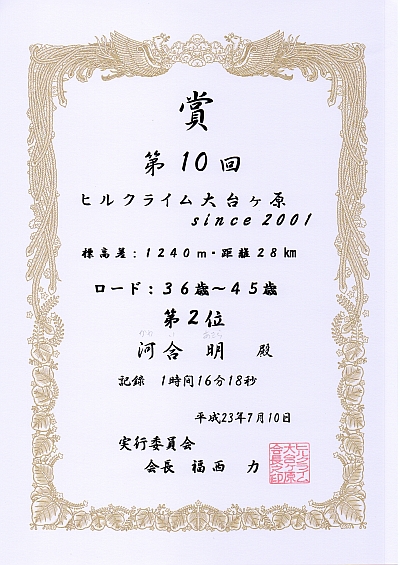 賞
第10回
ヒルクライム大台ヶ原
since 2001
標高差:1240m・距離28㎞
ロード:36歳～45歳
第2位
河合 明 殿
記録 1時間16分18秒
平成23年7月10日
実行委員会
会長 福西 力
ヒルクライム
大台ヶ原
会長之印